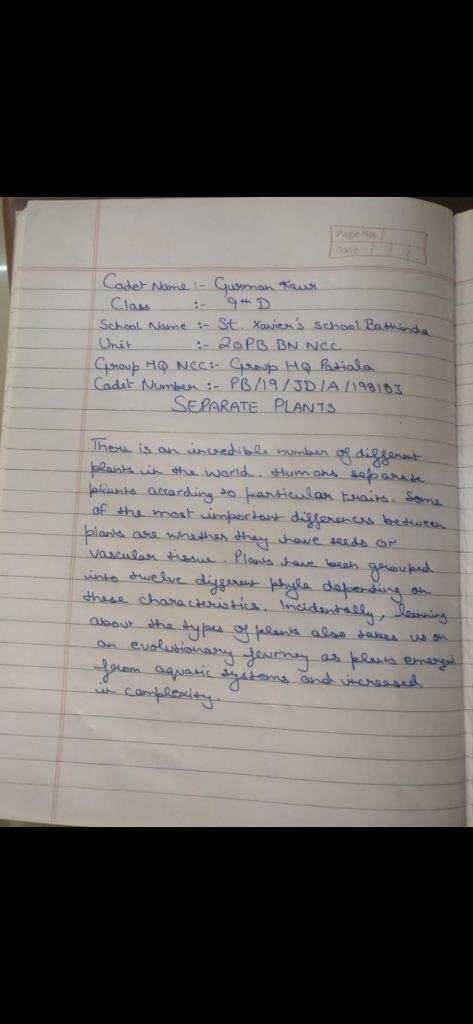 Page No.
Date
Cadet Name :- Gurman Kaur
Class :- 9th D
School Name :- St. Xavier's School Bathinda
Unit :- 20PB BN NCC
Group HQ NCC:- Group HQ Patiala
Cadet Number :- PB/19/JD/A/198183
SEPARATE PLANTS
There is an incredible number of different
plants in the world. Humans separate
plants according to particular traits. Some
of the most important differences between
plants are whether they have seeds or
vascular tissue. Plants have been grouped
into twelve different phyla depending on
these characteristics. Incidentally, learning
about the types of plants also takes us on
an evolutionary journey as plants emerged
from aquatic systems and increased
in complexity.